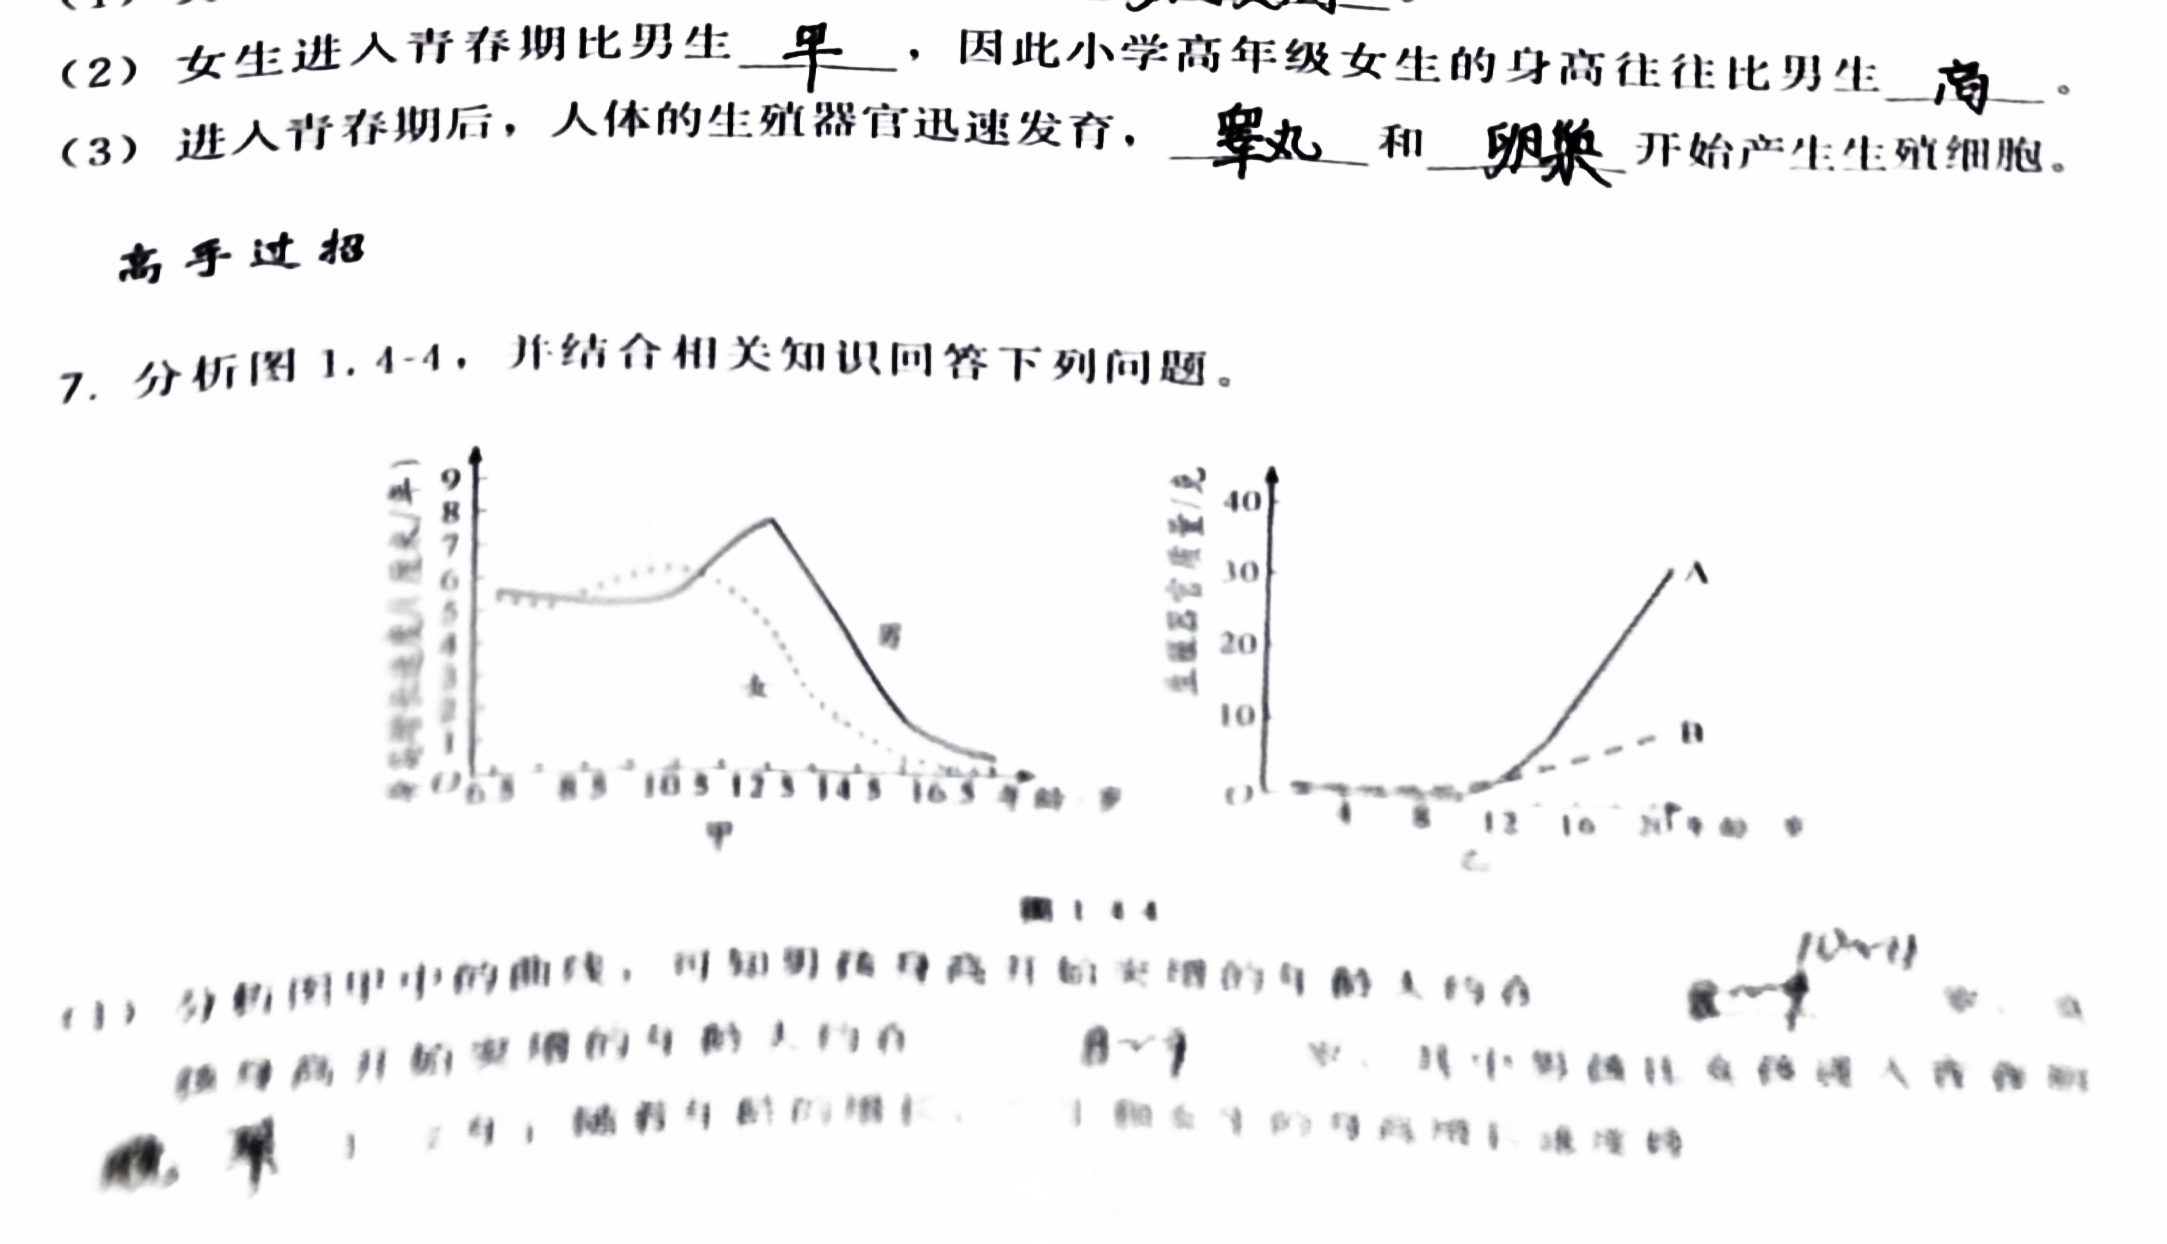 (2) 女生进入青春期比男生 早 ，因此小学高年级女生的身高往往比男生 高 。
(3) 进入青春期后，人体的生殖器官迅速发育， 睾丸 和 卵巢 开始产生生殖细胞。
高手过招
7. 分析图 1.4-4，并结合相关知识回答下列问题。
9
8
7
6
5
4
3
2
1
O
6.5 8.5 10.5 12.5 14.5 16.5 年龄/岁
男
女
甲
生殖器官质量/克
40
30
20
10
O
4 8 12 16 20 年龄/岁
A
B
乙
图 1.4-4
10~11
(1) 分析图甲中的曲线，可知男孩身高开始突增的年龄大约在 岁，女
孩身高开始突增的年龄大约在 8~9 岁，其中 进入青春期
早 年；随着年龄的增长， 和女生的身高增长速度